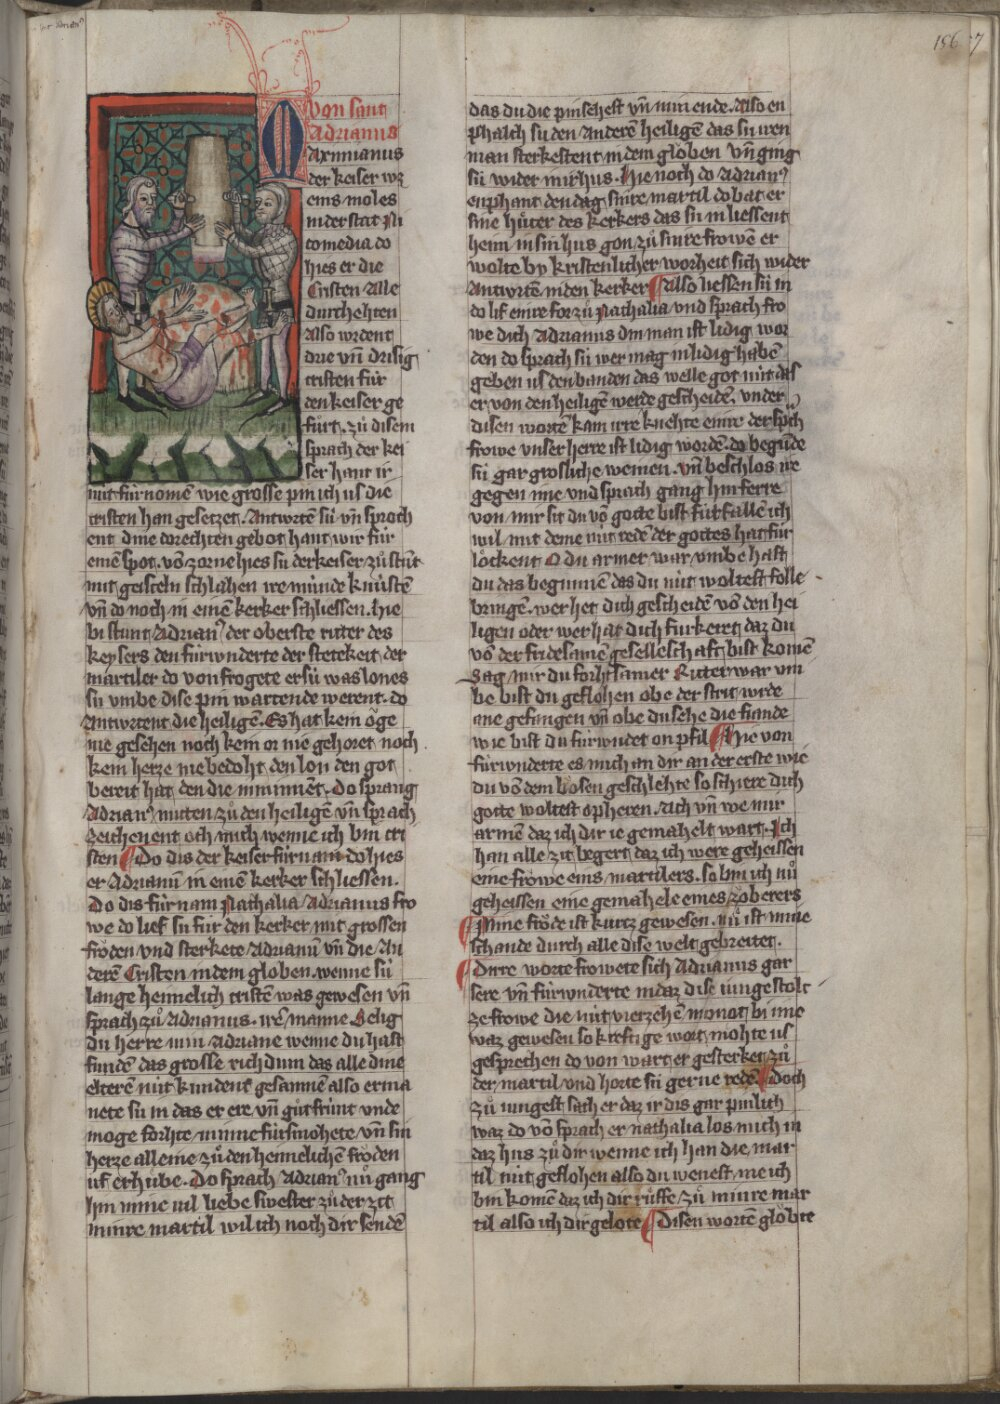 von sant
Adrianus
Maximianus
der keiser wz
eins moles
in der stat Ni
comedia do
hies er die
Cristen alle
durchehten
Also wrdent
drie vn̄ drisig
cristen für
den keiser ge
fürt. zů disem
sprach der kei
ser hant ir
nüt fürnomē wie grosse pin ich uf die
cristen han gesetzet. Antwrtē sü vn̄ sproch
ent dine dorechten gebot hant wir für
einē spot. vō zorne hies sü der keiser zůstūt
mit geisceln schlahen ire münde knüstē
vn̄ do noch in einē kerker schliessen. hie
bi stunt Adrian⁹ der oberste ritter des
keysers den fürwnderte der stetekeit der
martiler do von frogete er sü was lones
sü vmbe dise pin wartende werent. do
Antwrtent die heiligē. Es hat kein ȯge
nie gesehen noch kein or nie gehoret noch
kein herze nie bedoht den lon den got
bereit hat den die in minnēt. Do sprang
Adrian⁹ mitten zů den heiligē vn̄ sprach
Zeichenent och mich wenne ich bin cri
sten ¶ Do dis der keiser fürnam do hies
er Adrianū in einē kerker schliessen.
Do dis fürnam Nathalia Adrianus fro
we do lief sü für den kerker mit grossen
fröden vnd sterkete Adrianū vn̄ die An
derē Cristen in dem gloͮben. wenne sü
lange heimelich cristē was gewesen vn̄
sprach zů Adrianus. irē manne Selig
du herre min Adriane wenne du hast
fundē das grosse richdum das alle dine
elterē nüt kundent gesamnē also erma
nete sü in das er ere vn̄ gůt frünt vnde
moge forhte minne fürsmohete vn̄ sin
herze alleine zů den himelichē fröden
uf erhůbe. Do sprach Adrian⁹ nů gang
hin mine vil liebe swester zů der zit
minre martil wil ich noch dir sendē
das du die pin sehest vn̄ min ende. Also en
phalch sü den Anderē heiligē das sü iren
man sterkestent in dem gloͮben vn̄ ging
sü wider in ir hus. hie noch do Adrian⁹
enphant den dag sinre martil do bat er
sine hůter des kerkers das sü in liessent
heim in sin hus gon zů sinre frowē er
wolte by kristenlicher worheit sich wider
Antwrtē in den kerker ¶ Also liessen sü in
do lief einre for zů Nathalia vnd sprach fro
we dich Adrianus din man ist lidig wor
den do sprach sü wer mag in lidig habē
geben us den banden das welle got nüt das
er von den heiligē werde gescheidē. vnder
disen wortē kam irre knehte einre der spch
frowe vnser herre ist lidig wordē. do begūde
sü gar grosliche weinen. vn̄ beschlos ire
gegen ime vnd sprach gang hin ferre
von mir sit du vō gotte bist fürfallē ich
wil mit deme nüt redē der gottes hat für
loͮckent O du armer war vmbe hast
du das beginnē das du nüt woltest folle
bringē. wer het dich gescheidē vō den hei
ligen oder wer hat dich fürkeret daz du
vō der fridesamē geselleschaft bist komē
Sag mir du forhtsamer Ritter war vm
be bist du geflohen obe der strit wrde
ane gefangen vn̄ obe du sehe die fiande
wie bist du fürwndet on pfil ¶ Hie von
fürwnderte es mich an dir an der erste wie
du vō dem bosen geschlehte so schiere dich
gotte woltest opheren. Ach vn̄ we mir
armē daz ich dir ie gemahelt wart. Ich
han alle zit begert daz ich were geheissen
eine frowe eins martilers. so bin ich nů
geheissen eine gemahele eines zoberers
¶ Mine fröde ist kurtz gewesen. nů ist mine
schande durch alle dise welt gebreitet.
¶ Dirre worte frowete sich Adrianus gar
sere vn̄ fürwnderte in daz dise iunge stolt
ze frowe die nüt vierzehē monot bi ime
waz gewesen so kreftige wort mohte us
gesprechen do von wart er gesterket zů
der martil vnd horte sü gerne redē ¶ Doch
zů iungest sach er daz ir dis gar pinlich
waz do vō sprach er nathalia los mich in
daz hus zů dir wenne ich han die mar
til nüt geflohen also du wenest me ich
bin komē daz ich dir rüffe zů minre mar
til also ich dir gelote ¶ Disen wortē glöbte